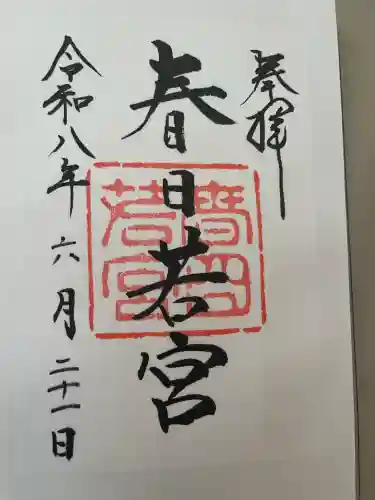 奉拝
春日若宮
春日若宮
令和八年六月二十一日